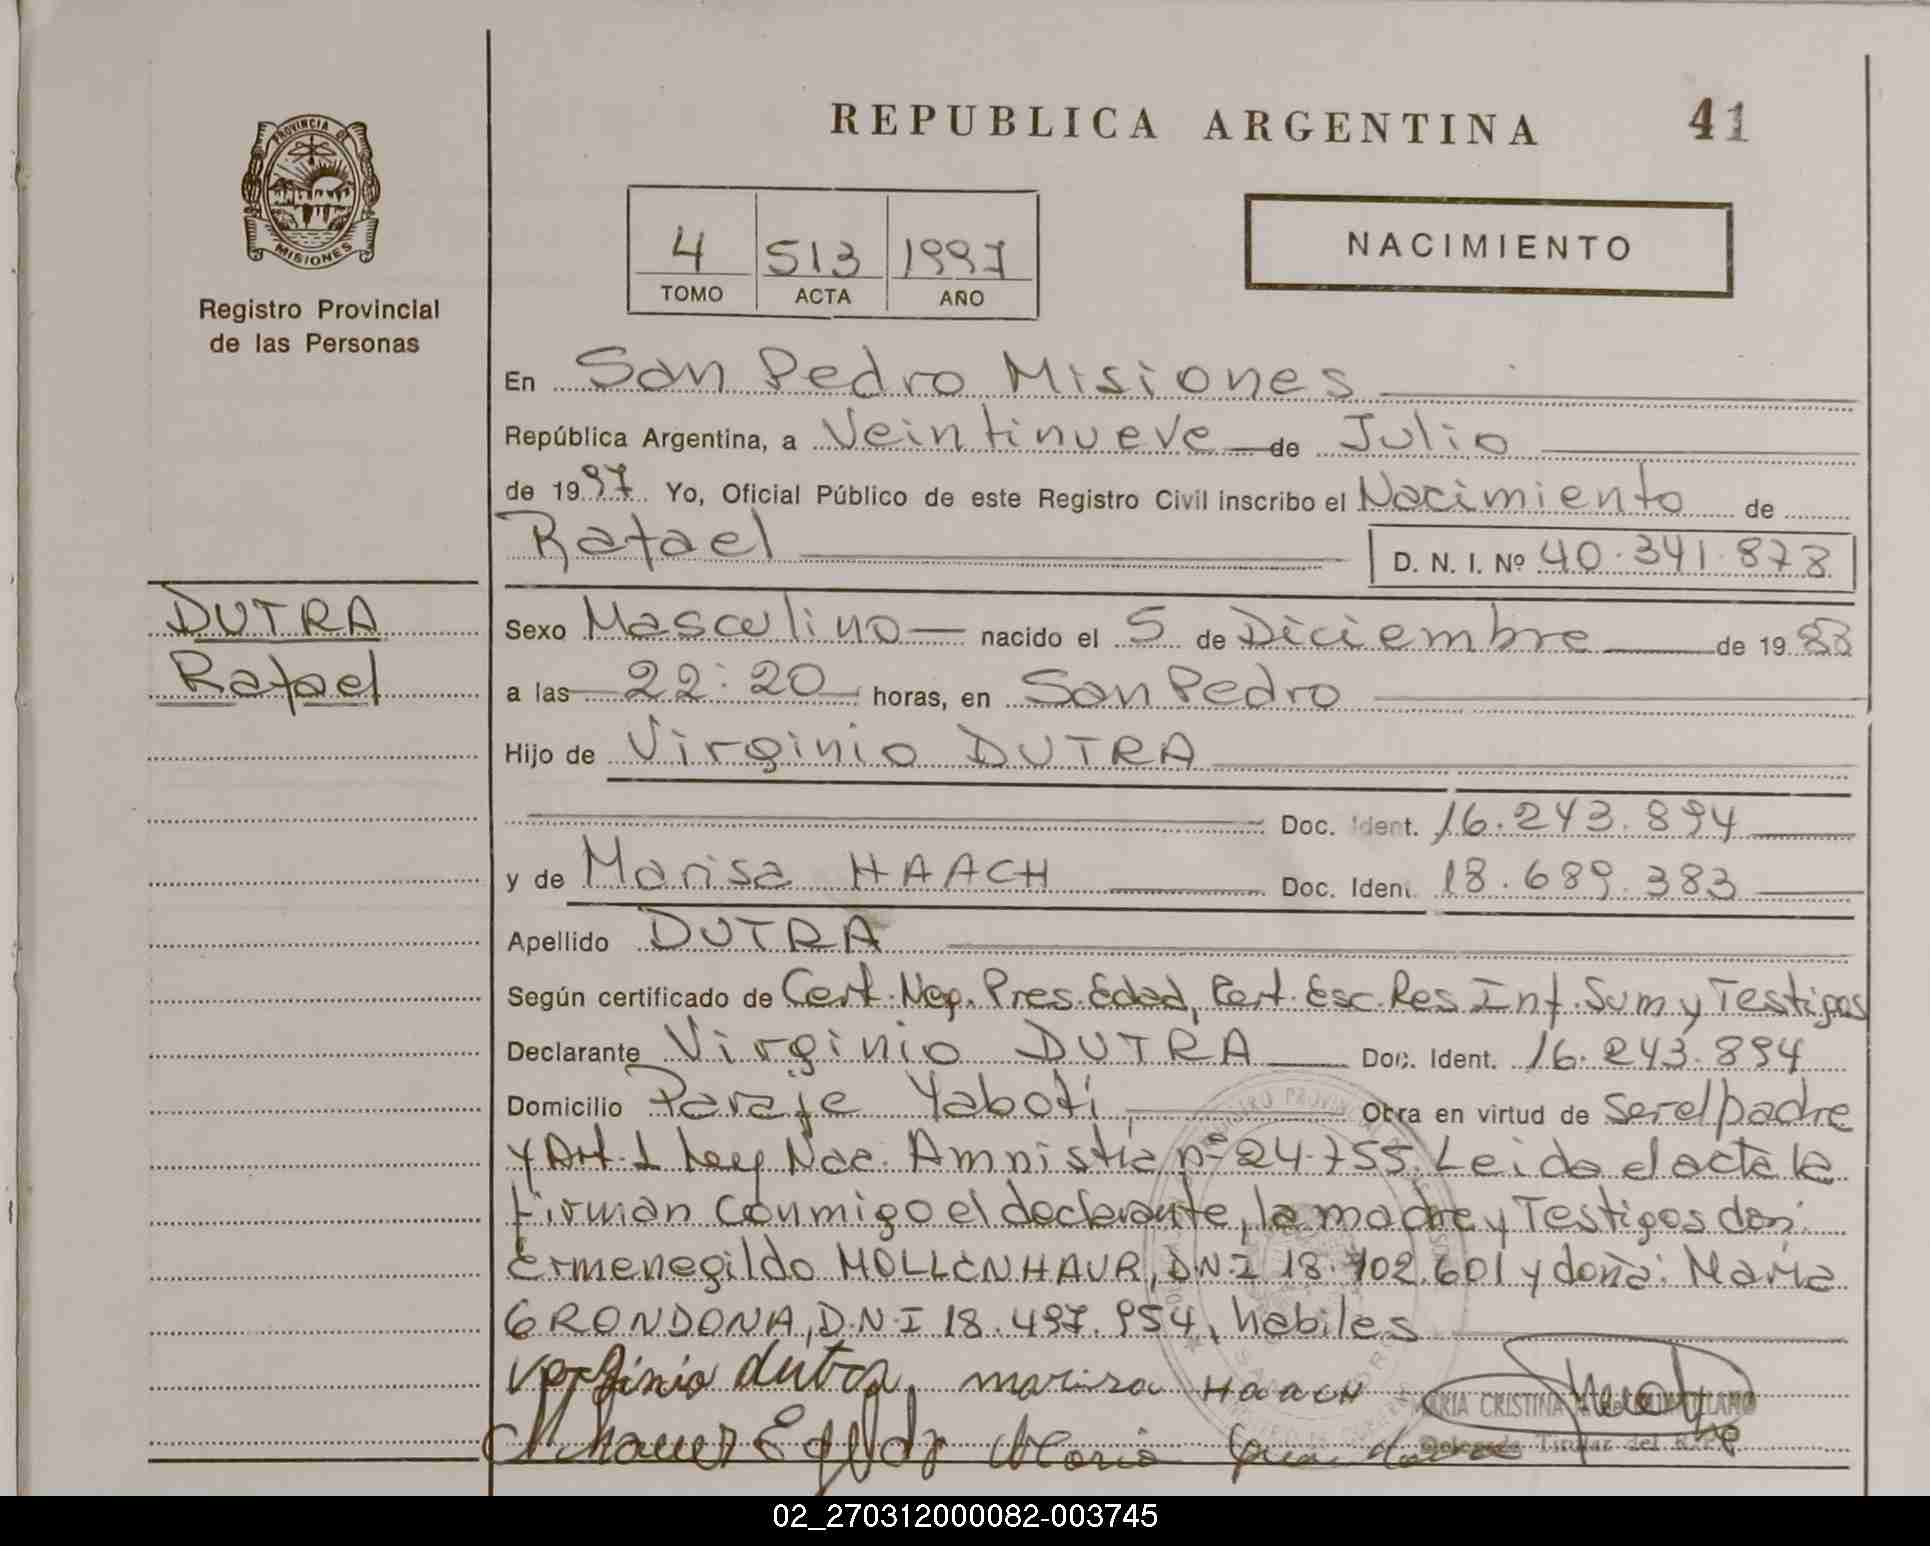 REPUBLICA ARGENTINA
41
PROVINCIA DE
MISIONES
Registro Provincial
de las Personas
4 513 1997
TOMO ACTA AÑO
NACIMIENTO
En San Pedro Misiones
República Argentina, a Veintinueve de Julio
de 1997 Yo, Oficial Público de este Registro Civil inscribo el Nacimiento de
Rafael D. N. I. Nº 40.341.873
DUTRA
Rafael
Sexo Masculino nacido el 5 de Diciembre de 1988
a las 22:20 horas, en San Pedro
Hijo de Virginio DUTRA
Doc. Ident. 16.243.894
y de Marisa HAACH Doc. Ident. 18.689.383
Apellido DUTRA
Según certificado de Cert. Neg. Pres. Edad, Cert. Esc. Res Inf. Sum y Testigos
Declarante Virginio DUTRA Doc. Ident. 16.243.894
Domicilio Paraje Yaboti Obra en virtud de ser el padre
y Art. 1 Ley Nac. Amnistia nº 24.755. Leida el acta la
firman conmigo el declarante, la madre y Testigos don:
Ermenegildo HOLLENHAUR, DNI 18.702.601 y doña: Maria
GRONDONA, D.N.I 18.497.954, habiles
Verginio dutra marisa HaacH
MARIA CRISTINA
Delegada Titular del
Maria
02_270312000082-003745